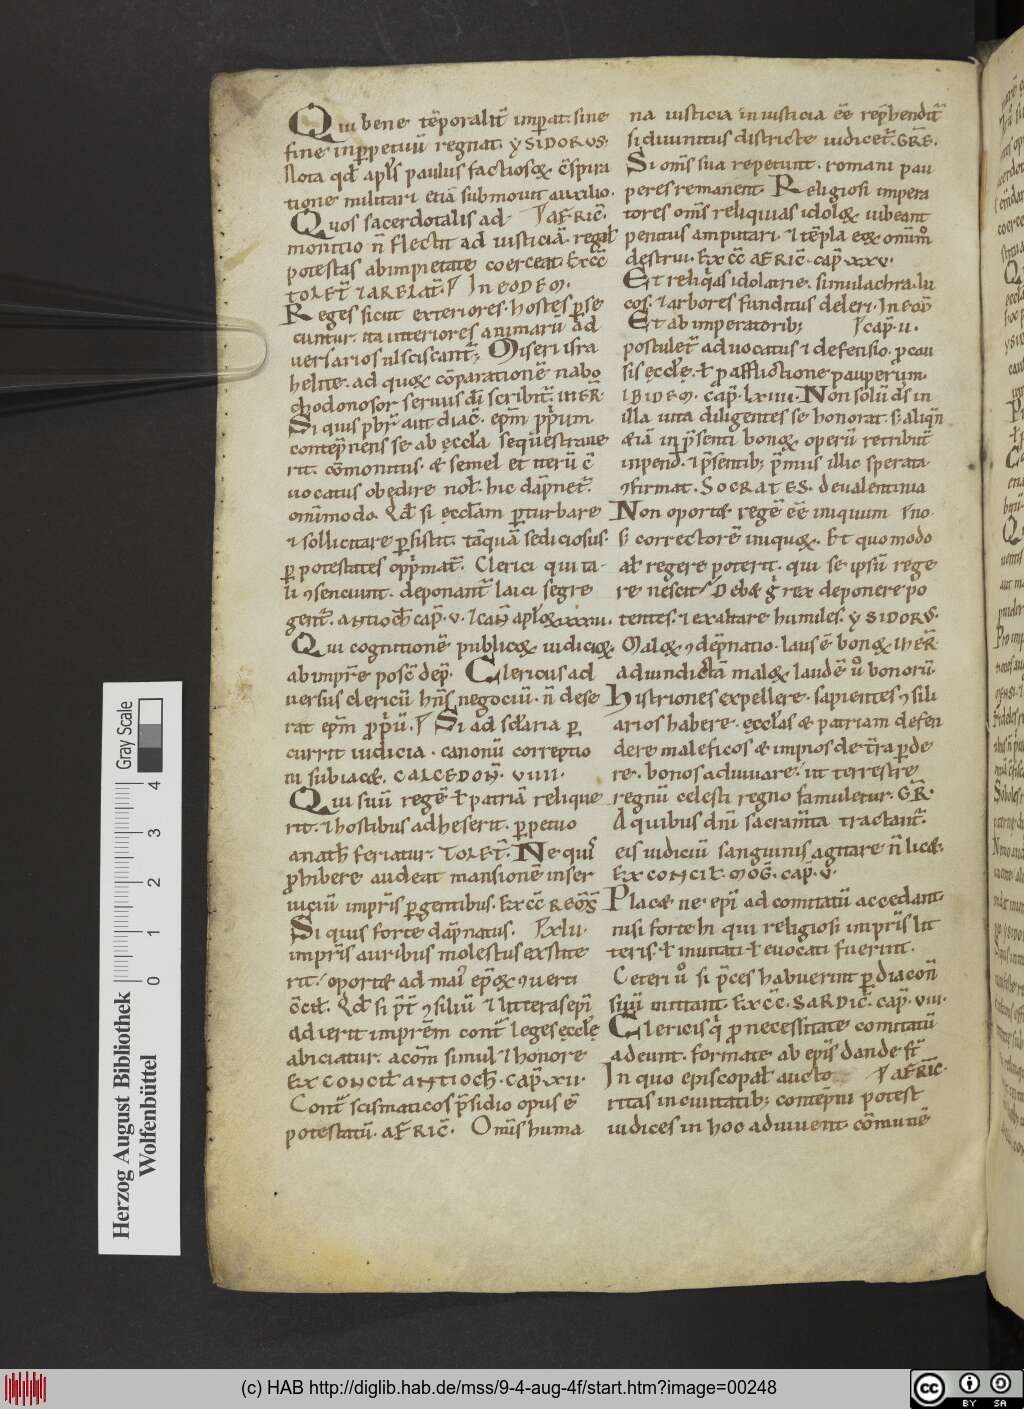 Qui bene tēporalit̄ imperat. sine
fine inp̱petuū regnat. YSIDORVS.
Nota qđ apl̄s paulus factiosoꝝ c̄spira
tione militari etiā submouit auxilio.
Quos sacerdotalis ad AFRIC̄.
monitio n̄ flectit ad iusticiā. regal̄
potestas abimpietate coerceat. Ex cc̄
TOLET̄ ⁊ ARELAT̄. IN EODEM.
Reges sicut exteriores. hostes p̱se
cuntur. ita interiores animarū ad
uersarios ulsciscant̄; Miseri isra
helite. ad quoꝝ cōparationē nabo
chodonosor seruus dī scribit̄. IHER̄.
Si quis pbr̄ aut diac̄. epm̄ pp̄rium
contēpnens se ab ęccl̄a sequestraue
rit. cōmonitus. & semel et iterū c̄
uocatus obędire nol̄. hic dāpnet̄.
omīmodo. Qđ si ęccl̄am p̱turbare
⁊ sollicitare p̱sistit. tāquā sediciosus.
p̱ potestates opp̄mat̄. Clerici qui ta-
li ꝯsenciunt. deponant̄ laici segre
gent̄. ANTIOCH̄ CAP̄. V. ⁊ CAN̄ APL̄OꝜ XXXIII.
Qui cognitionē publicoꝝ iudicioꝝ
ab impr̄e posc̄ dep̄. Clericus ad
uersus clericū hn̄s negociū. n̄ dese
rat epm̄ prop̄ū. Si ad scl̄aria p̱
currit iudicia. canonū correptio
ni subiac&. CALCEDON̄. VIIII.
Qui suū regē ł patriā relique
rit. ⁊ hostibus adheserit. p̱petuo
anath̄ feriatur. TOLET̄. Ne quis
p̄hibere audeat mansionē inser
uiciū imp̄ris p̱gentibus. EX CC̄ REOM̄G
Si quis forte dāpnatus. XLII.
imp̄ris auribus molestus exstite
rit. oport& ad mai epōꝝ ꝯuerti
c̄cil̄. Qđ si p̄t̄ ꝯsiliū ⁊ litteras epī
adierit impr̄em cont̄ leges ęccl̄ę
abiciatur. a com̄ simul ⁊ honore
EX CONCIL̄ ANTIOCH̄. CAP̄. XII.
Cont̄ scismaticos p̄sidio opus ē
potestatū. AFRIC̄. Omīs huma
na iusticia iniusticia ēē rep̄hendit̄
si diuinitus districte iudicet̄. GRE.
Si omīs sua repetunt. romani pau
peres remanent. Religiosi impera
tores omīs reliquias idoloꝝ iubeant
penitus amputari. ⁊ tēpla eoꝝ omīm̄o
destrui. EX CC̄ AFRIC̄. CAP̄. XXV.
Et reliqⁱas idolatrie. simulachra. lu
cos. ⁊ arbores funditus deleri. IN EOD̄
Et ab imperatorib; CAP̄. II.
postulet̄ aduocatus ⁊ defensio. p̄ cau
sis ęccl̄ę. ł p̄ afflictione pauperum.
IBIDEM. CAP̄. LXIIII. Non solū dī in
illa uita diligentes se honorat. s; aliqn̄
&iā in p̄senti bonoꝝ operū retribuit̄
inpend̄. ⁊ p̄sentib; p̄miis illic sperata
ꝯfirmat. SOCRATES. de ualentinia
Non oport& regē ēē iniquum no-
s; correctorē iniquoꝝ. Et quomodo
al̄ regere poterit. qui se ipsū rege
re nescit. Deb& g̊ rex deponere po
tentes. ⁊ exaltare humiles. YSIDORVS.
Maloꝝ ꝯdēpnatio. laus ē bonoꝝ IHER̄.
ad uindictā maloꝝ laudē ů bonorū.
Histriones expellere. sapientes ꝯsili
arios habere. ęccl̄as & patriam defen
dere maleficos & impios de t̄ra p̱de
re. bonos adiuuare. ut terrestre
regnū celesti regno famuletur. GR̄.
A quibus dn̄i sacram̄ta tractant̄.
eis iudiciū sanguinis agitare n̄ lic&.
EX CONCIL̄ MOḠ. CAP̄. V.
Plac& ne epī ad comitatū accedant.
nisi forte hi qui religiosi imp̄ris lit
teris. ł inuitati ł euocati fuerint.
Ceteri ů si p̄ces habuerint p̱ diacon̄
suū mittant. EX CC̄. SARDIC̄. CAP̄. VIII.
Clericis qⁱ p̄ necessitate comitatū
adeunt. formate ab epīs dande st̄
In quo episcopal̄ aucto AFRIC̄.
ritas in ciuitatib; contēpni potest
iudices in hoc adiuuent. cōmunē
Herzog August Bibliothek
Wolfenbüttel
Gray Scale
0 1 2 3 4
(c) HAB http://diglib.hab.de/mss/9-4-aug-4f/start.htm?image=00248
cc BY SA